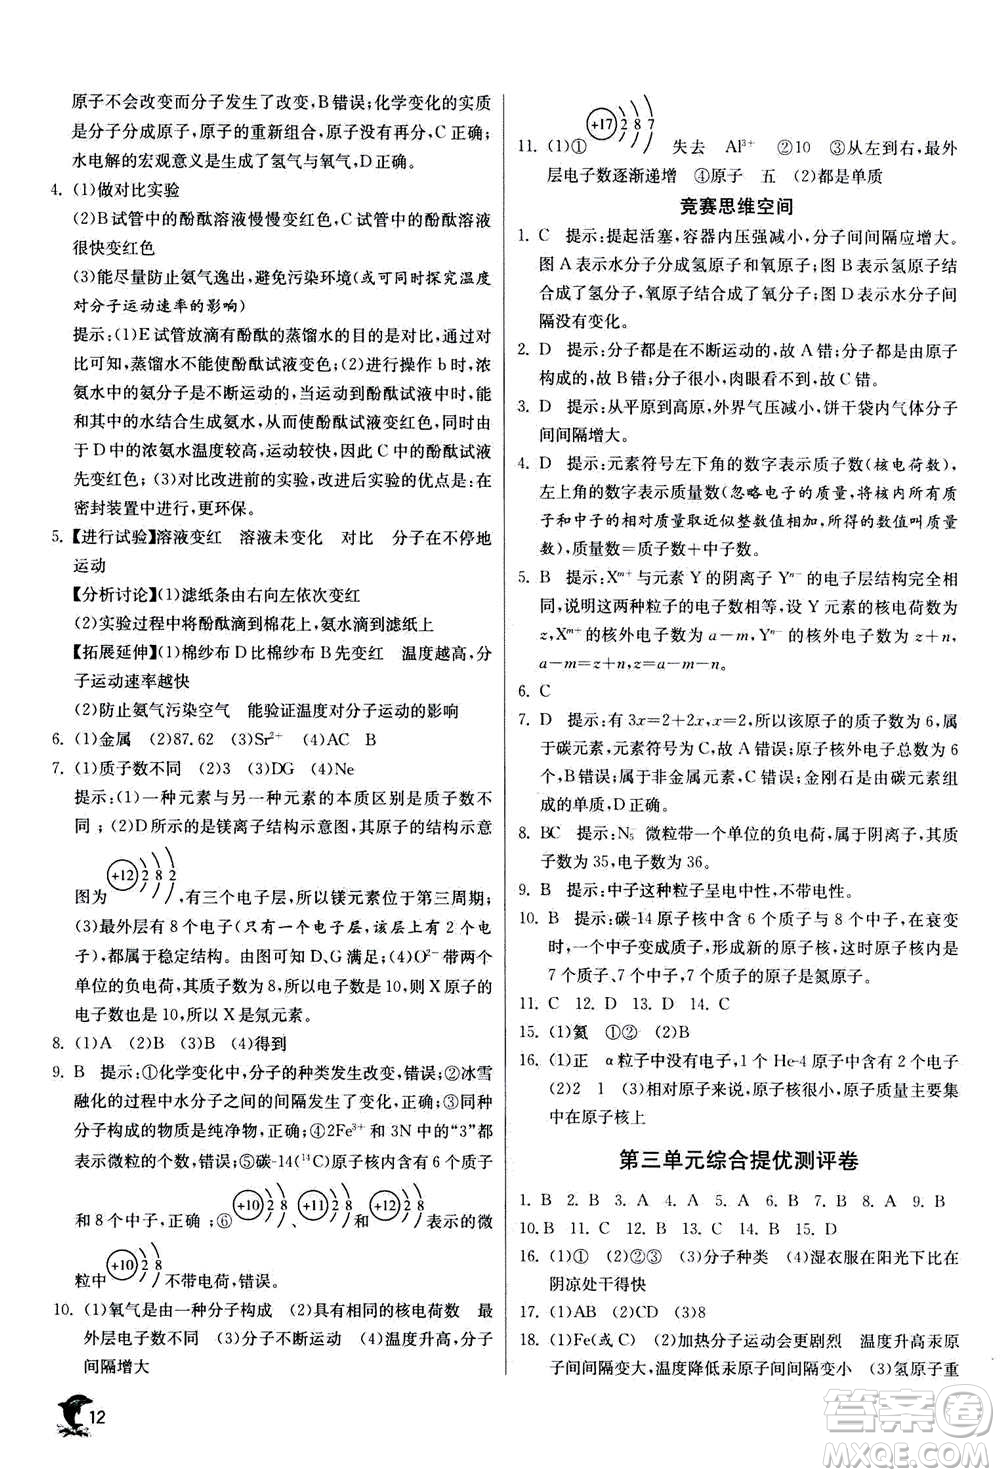 原子不会改变而分子发生了改变,B错误;化学变化的实质
是分子分成原子,原子的重新组合,原子没有再分,C正确;
水电解的宏观意义是生成了氢气与氧气,D正确。
4. (1)做对比实验
(2)B试管中的酚酞溶液慢慢变红色,C试管中的酚酞溶液
很快变红色
(3)能尽量防止氨气逸出,避免污染环境(或可同时探究温度
对分子运动速率的影响)
提示:(1)E试管放滴有酚酞的蒸馏水的目的是对比,通过对
比可知,蒸馏水不能使酚酞试液变红色;(2)进行操作b时,浓
氨水中的氨分子是不断运动的,当运动到B、C试管时,与其
中的水结合生成氨水,从而使酚酞试液变红色,同时由
于D中的浓氨水温度较高,运动较快,因此C中的酚酞试液
先变红色;(3)对比改进前的实验,改进后实验的优点是:在
密封装置中进行,更环保。
5. 【进行试验】溶液变红 溶液未变化 对比 分子在不停地
运动
【分析讨论】(1)滤纸条由右向左依次变红
(2)实验过程中将酚酞滴到棉花上,氨水滴到滤纸上
【拓展延伸】(1)棉纱布D比棉纱布B先变红 温度越高,分
子运动速率越快
(2)防止氨气污染空气 能验证温度对分子运动的影响
6. (1)金属 (2)87.62 (3)Sr²⁺ (4)AC B
7. (1)质子数不同 (2)3 (3)DG (4)Ne
提示:(1)一种元素与另一种元素的本质区别是质子数不
同;(2)D所示的是镁离子结构示意图,其原子的结构示意
图为 +12 2 8 2 ,有三个电子层,所以镁元素位于第三周期;
(3)最外层有8个电子(只有一个电子层,有2个电子)的
属于稳定结构。由图可知D、G满足;(4)O²⁻带有两个
单位的负电荷,其质子数为8,所以电子数是10,则X原子的
电子数也是10,所以X是氖元素。
8. (1)A (2)B (3)B (4)得到
9. B 提示:①化学变化中,分子的种类发生改变,错误;②冰雪
融化的过程中水分子之间的间隔发生了变化,正确;③同种
分子构成的物质是纯净物,正确;④2Fe³⁺和3N中的“3”都
表示微粒的个数,错误;⑤碳-14(¹⁴C)原子核内含有6个质子
和8个中子,正确;⑥ +10 2 8 、 +11 2 8 和 +12 2 8 表示的微
粒中 +10 2 8 不带电荷,错误。
10. (1)氧气是由一种分子构成 (2)具有相同的核电荷数 最
外层电子数不同 (3)分子不断运动 (4)温度升高,分子
间间隔增大
12
11. (1)① +17 2 8 7 失去 Al³⁺ ②10 ③从左到右,最外
层电子数逐渐递增 ④原子 五 (2)都是单质
竞赛思维空间
1. C 提示:提起活塞,容器内压强减小,分子间间隔应增大。
图A表示水分子分成氢原子和氧原子;图B表示氢原子结
合成了氢分子,氧原子结合成了氧分子;图D表示水分子间
隔没有变化。
2. D 提示:分子都是在不断运动的,故A错;分子是由原子
构成的,故B错;分子很小,肉眼看不到,故C错。
3. D 提示:从平原到高原,外界气压减小,饼干袋内气体分子
间间隔增大。
4. D 提示:元素符号左下角的数字表示质子数(核电荷数),
左上角的数字表示质量数(忽略电子的质量,将核内所有质
子和中子的相对质量取近似整数值相加,所得的数值叫质量
数),质量数=质子数+中子数。
5. B 提示:Xᵐ⁺与元素Y的阴离子Yⁿ⁻的电子层结构完全相
同,说明这两种粒子的电子数相等,设Y元素的核电荷数为
z,Xᵐ⁺的核外电子数为a-m,Yⁿ⁻的核外电子数为z+n,
a-m=z+n,z=a-m-n。
6. C
7. D 提示:有3x=2+2x,x=2,所以该原子的质子数为6,属
于碳元素,元素符号为C,故A错误;原子核外电子总数为6
个,B错误;属于非金属元素,C错误;金刚石是由碳元素组
成的单质,D正确。
8. BC 提示:N₅⁻微粒带一个单位的负电荷,属于阴离子,质
子数为35,电子数为36。
9. B 提示:中子这种粒子呈电中性,不带电性。
10. B 提示:碳-14原子核中含6个质子与8个中子,在衰变
时,一个中子变成质子,形成新的原子核,所以原子核内是
7个质子、7个中子,7个质子的原子是氮原子。
11. C 12. D 13. D 14. C
15. (1)氦 ①② (2)B
16. (1)正 α粒子中没有电子,1个He-4原子中含有2个电子
(2)2 1 (3)相对原子来说,原子核很小,原子质量主要集
中在原子核上
第三单元综合提优测评卷
1. B 2. B 3. A 4. A 5. A 6. B 7. A 8. A 9. B
10. B 11. C 12. B 13. C 14. B 15. D
16. (1)① (2)②③ (3)分子种类 (4)湿衣服在阳光下比在
阴凉处干得快
17. (1)AB (2)CD (3)8
18. (1)Fe(或C) (2)加热分子运动会更剧烈 温度升高汞原
子间间隔变大,温度降低汞原子间间隔变小 (3)氢原子重
答案圈
MXQE.COM